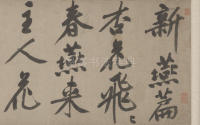 新燕篇
杏花飛〻
春燕来
主人花